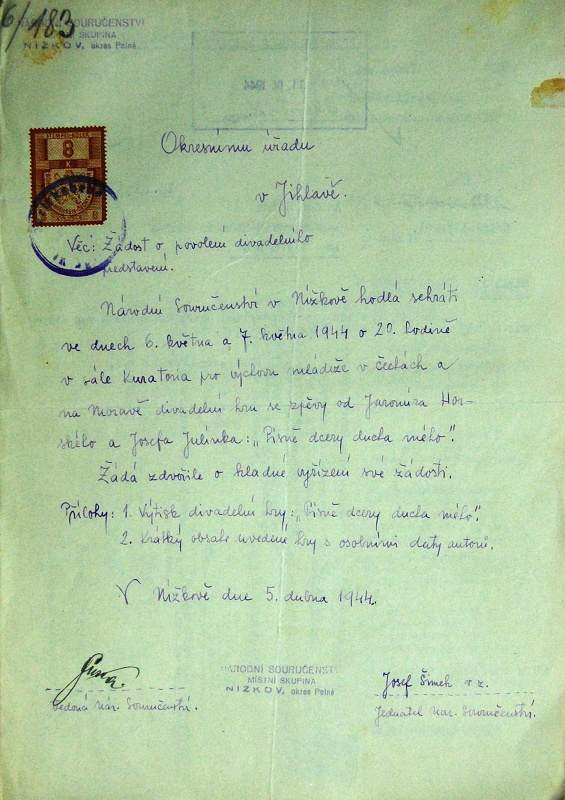 6/183
NÁRODNÍ SOURUČENSTVÍ
MÍSTNÍ SKUPINA
NÍŽKOV, okres Polná
11. IV. 1944
8
K
Okresnímu úřadu
v Jihlavě.
Věc: Žádost o povolení divadelního
představení.
Národní Souručenství v Nížkově hodlá sehráti
ve dnech 6. května a 7. května 1944 o 20. hodině
v sále Kuratoria pro výchovu mládeže v Čechách a
na Moravě divadelní hru se zpěvy od Jaromíra Hor-
ského a Josefa Julínka: „Písně dcery ducha mého".
Žádá zdvořile o kladné vyřízení své žádosti.
Přílohy: 1. Výtisk divadelní hry: „Písně dcery ducha mého".
2. Krátký obsah uvedené hry s osobními daty autorů.
V Nížkově dne 5. dubna 1944.
NÁRODNÍ SOURUČENSTVÍ
MÍSTNÍ SKUPINA
NÍŽKOV, okres Polná
Josef Šimek v z.
Vedoucí Nár. Souručenství.
Jednatel Nár. Souručenství.